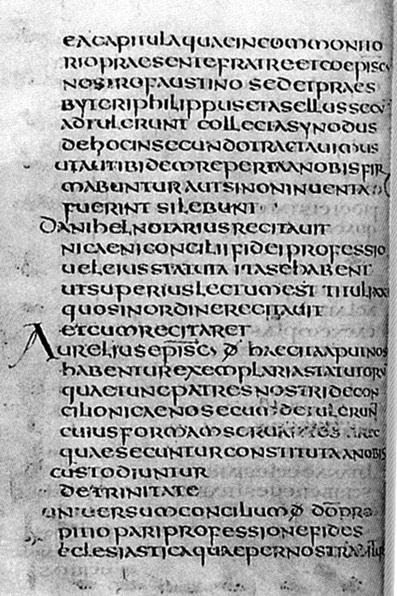 eacapitulaquaeincommonito
riopraesentefratreetcoepisc
nostrofaustino sedetpraes
byteriphilippusetasellussecu
adtulerunt collectasynodus
dehocinsecundotractauimus
utautibidemrepertaanobisfir
mabunturautsinoninuenta
fuerint silebunt
danihel,notariusrecitauit
nicaeniconciliifideiprofessio
ueleiusstatuta itasehabent
utsuperiuslectumest
quosinordinerecitauit
etcumrecitaret
Aureliusepisc đ haecitaaputnos
habenturexemplariastatutoru
quaetuncpatresnostridecon
cilionicaenosecum detulerun
cuiusformamseruantes haec
quaesecunturconstitutaanobis
custodiuntur
detrinitate
uniuersumconcilium đ dōpro
pitiopariprofessionefides
eclesiasticaquaepernostra